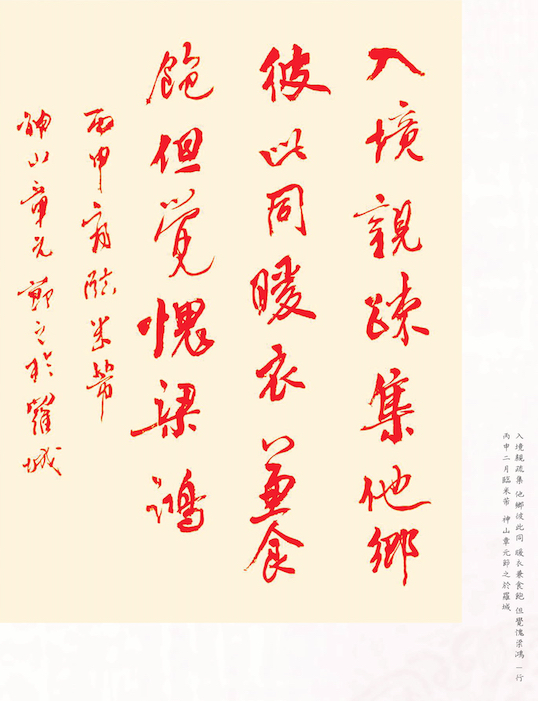 入境親疎集他鄉
彼此同暖衣兼食
飽但覺愧梁鴻
丙申二月臨米芾
神山章元節之於羅城
入境親疏集 他鄉彼此同 暖衣兼食飽 但覺愧梁鴻 一行
丙申二月臨米芾 神山章元節之於羅城